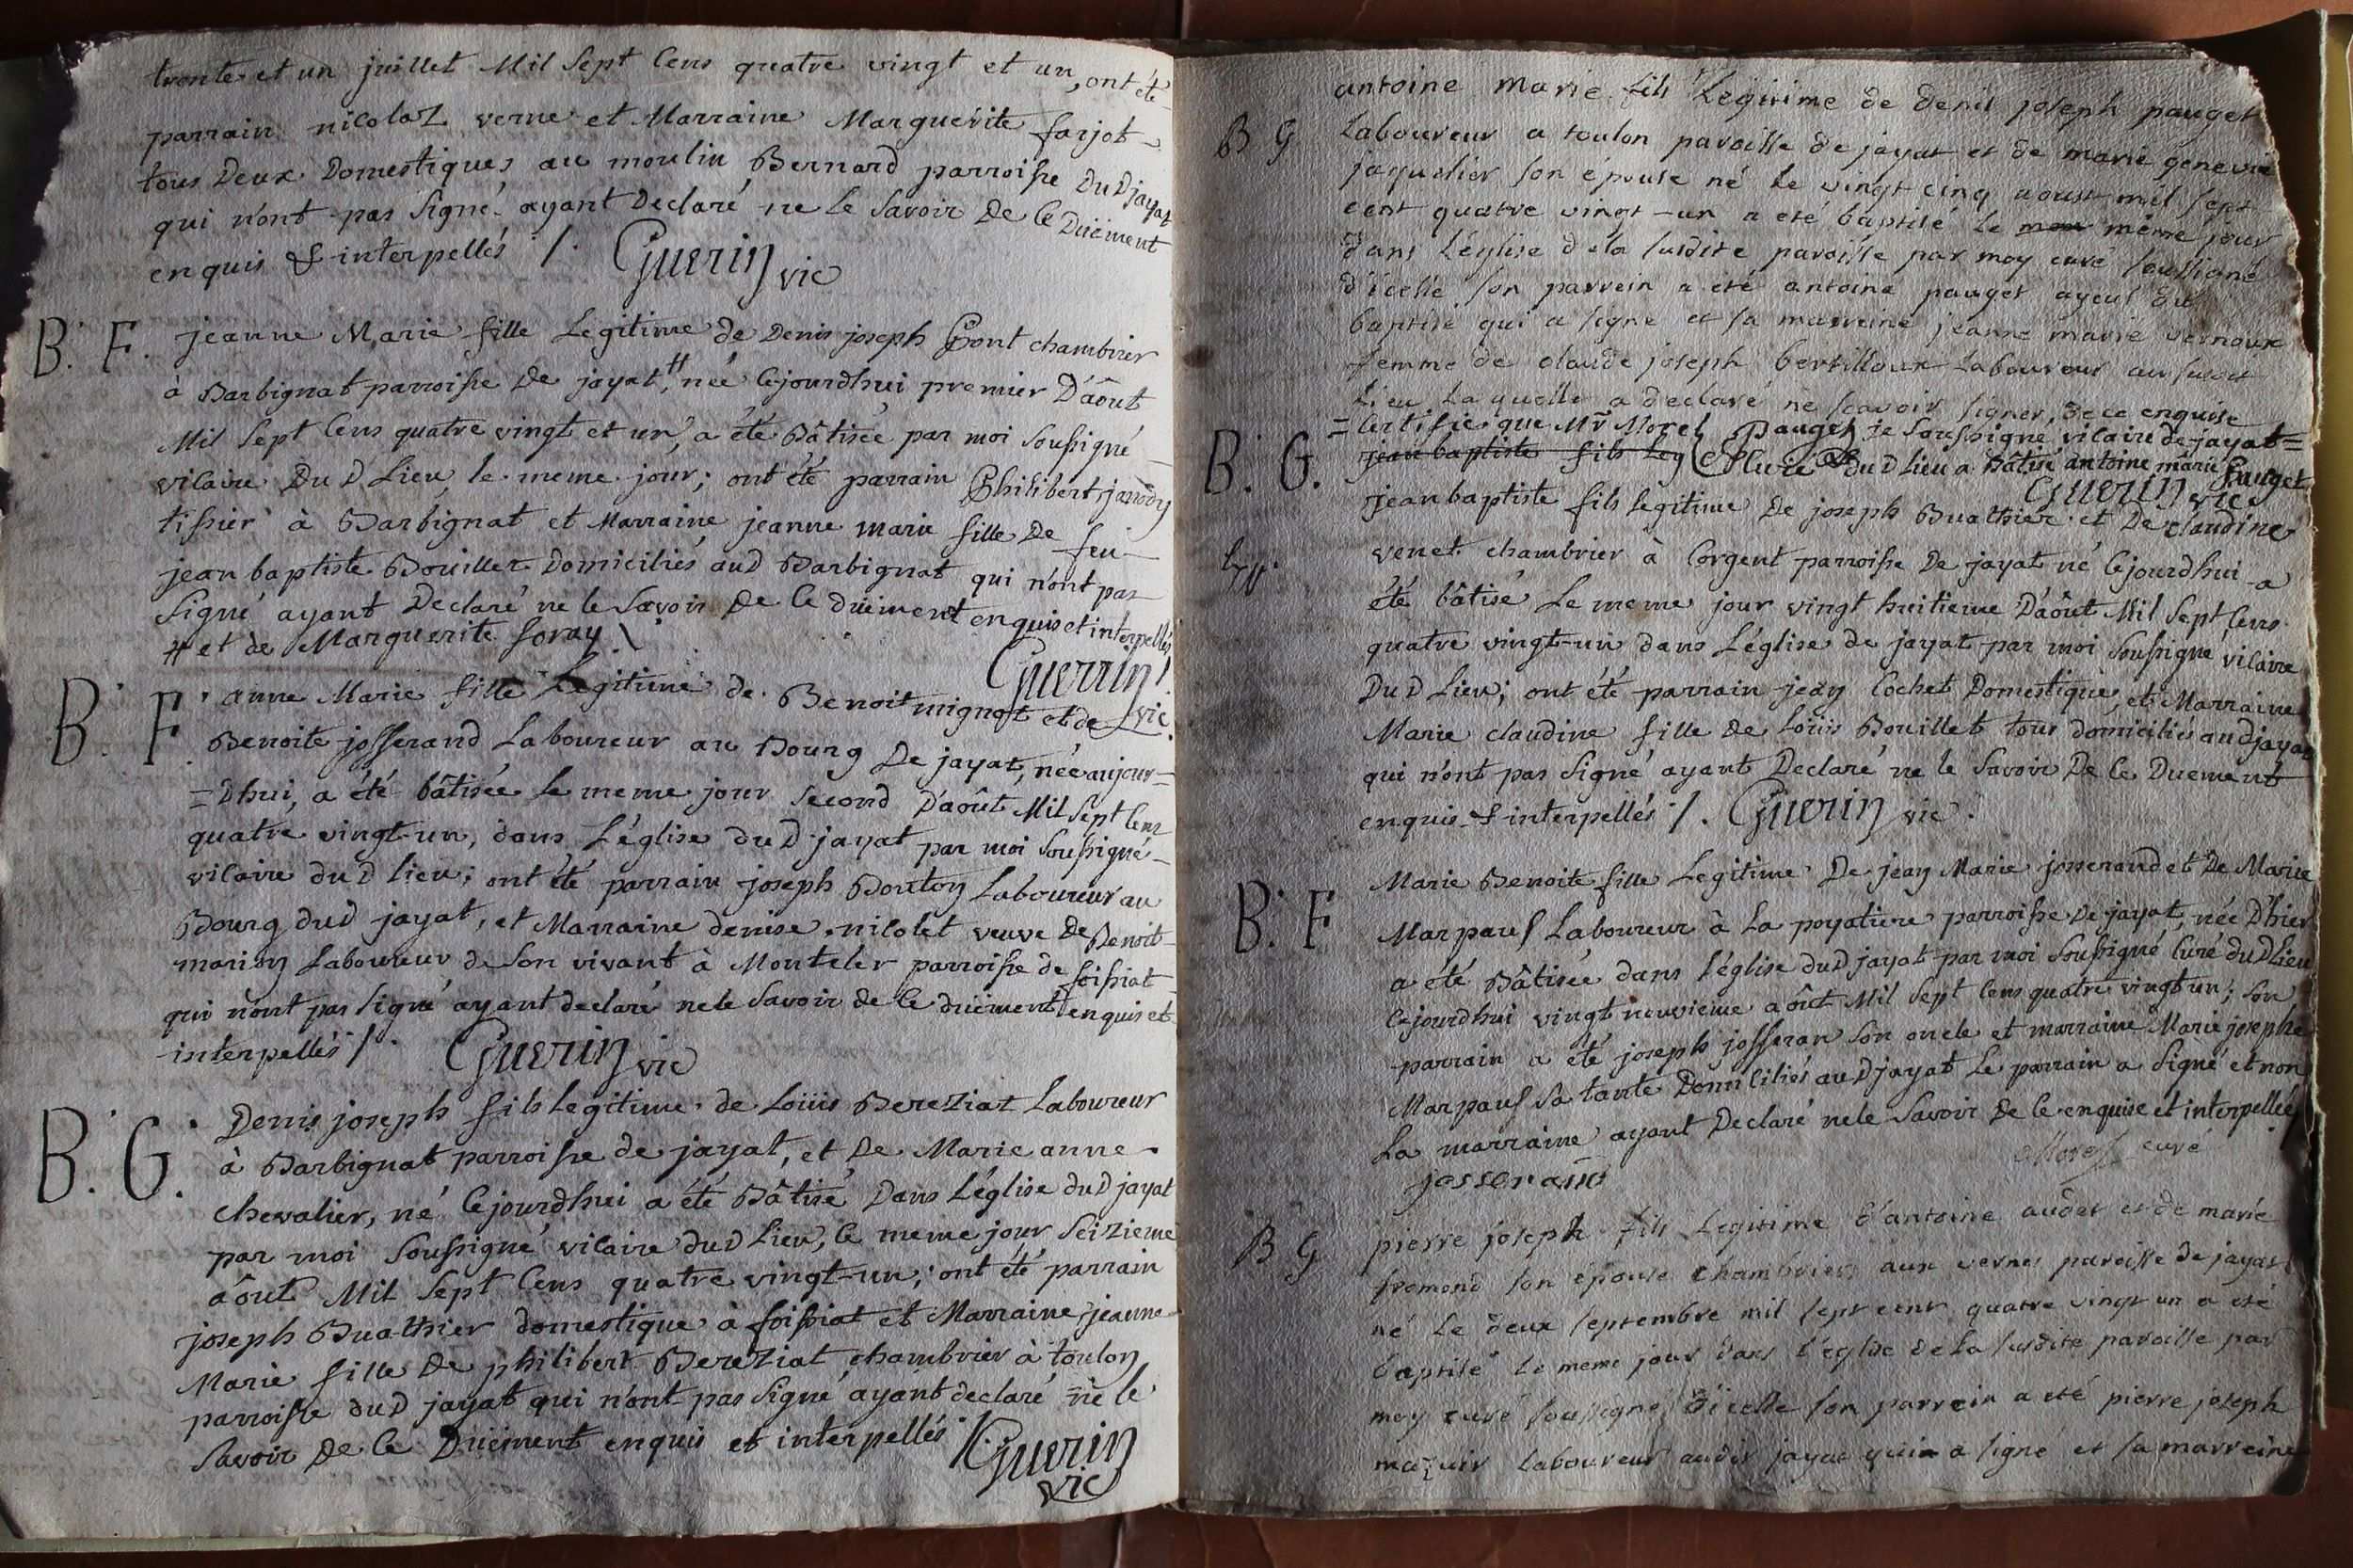 trente et un juillet Mil Sept Cens quatre vingt et un, ont été
parrain nicolaz verne et Marraine Marguerite farjot
tous Deux Domestiques au moulin Bernard parroisse DuD jayat
qui n'ont pas Signé ayant Declaré ne le Savoir De Ce Düement
enquis & interpellés /. Guerin vic
B. F. jeanne Marie fille Legitime de Denis joseph Pont chambrier
à Barbignat parroisse De jayat, # née Cejourdhui premier D'aôut
Mil Sept Cens quatre vingt et un, a été Bâtisée par moi Soussigné
vicaire DuD Lieu le meme jour; ont été parrain Philibert janody
tissier à Barbignat et Marraine jeanne marie fille De feu
jean baptiste Bouillet Domiciliés auD Barbignat qui n'ont pas
Signé ayant Declaré ne le Savoir De Ce düement enquis et interpellés
# et de Marguerite foray \ Guerrin vic
B. F. anne Marie fille Legitime de Benoit mignot et de
Benoite josserand Laboureur au Bourg De jayat, née aujour=
=D'hui, a été bâtisée le meme jour Second D'aôut Mil Sept Cens
quatre vingt-un, dans L'église duD jayat par moi Soussigné
vicaire duD lieu; ont été parrain joseph Bouton Laboureur au
Bourg duD jayat, et Marraine denise nicolet veuve De Benoit
marion Laboureur de Son vivant à Monteler parroisse de foissiat
qui n'ont pas Signé ayant declaré ne le Savoir de Ce düement enquis et
interpellés /. Guerin vic
B. G. Denis joseph fils legitime de Loüis Bereziat Laboureur
à Barbignat parroisse de jayat, et De Marie anne
chevalier, né Cejourdhui a été Bâtisé Dans L'église duD jayat
par moi Soussigné vicaire duD Lieu, le meme jour Seizieme
aôut Mil Sept Cens quatre vingt-un; ont été parrain
joseph Buathier domestique à foissiat et Marraine jeanne
Marie fille De philibert Bereziat chambrier à toulon
parroisse duD jayat qui n'ont pas Signé ayant declaré ne le
Savoir De Ce Düement enquis et interpellés /. Guerin
vic
antoine marie fils Legitime de denis joseph pauget
B G Laboureur a toulon paroisse de jayat et de marie genevie
jaquelier son épouse né le vingt cinq aoust mil sept
cent quatre vingt-un a eté baptisé le même jour
dans l'église de la susdite paroisse par moy curé soussigné
d'icelle son parrein a eté antoine pauget ayeul du
baptisé qui a signe et sa marreine jeanne marie vernoux
femme de claude joseph bertilloux Laboureur au susdit
Lieu Laquelle a declaré ne scavoir signer, de ce enquise
=Certifie que Mr Morel Pauget je Soussigné vicaire de jayat=
B. G. jean baptiste fils Leg Curé duD Lieu a Bâtisé antoine marie Pauget
Guerin vic
jean baptiste fils legitime De joseph Buathier et De claudine
venet chambrier à Corgent parroisse De jayat né Cejourdhui a
été bâtisé Le meme jour vingt huitieme D'aôut Mil Sept Cens
quatre vingt-un dans L'église de jayat par moi Soussigné vicaire
DuD Lieu; ont été parrain jean Cochet Domestique, et Marraine
Marie claudine fille De Loüis Bouillet tous domiciliés auD jayat
qui n'ont pas Signé ayant Declaré ne le Savoir De Ce Duement
enquis & interpellés /. Guerin vic.
B. F Marie Benoite fille Legitime De jean Marie josserand et De Marie
Marpaus Laboureur à La poyatiere parroisse De jayat, née D'hier
a été Bâtisée dans l'église duD jayat par moi Soussigné Curé duD Lieu
Cejourdhui vingt neuvieme aôut Mil Sept Cens quatre vingt un; Son
parrain a été joseph josseran Son oncle et marraine Marie josephe
Marpaus Sa tante Domiciliés auD jayat Le parrain a Signé et non
La marraine ayant Declaré ne le Savoir De Ce enquise et interpellée
josserand Morel curé
B G pierre joseph fils Legitime d'antoine audet et de marie
fremond son épouse chambrier aux vernes paroisse de jayat
né le deux septembre mil sept cent quatre vingt un a eté
baptisé le meme jour dans l'église de la susdite paroisse par
moy curé soussigné d'icelle son parrein a eté pierre joseph
mazuir Laboureur audit jayat qui a signé et sa marreine